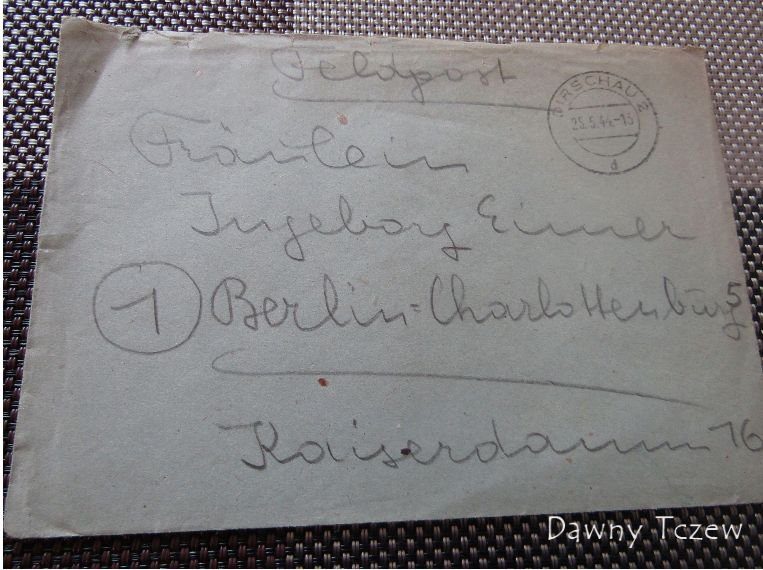 Feldpost
DIRSCHAU 2
25.5.44-15
d
Fräulein
Ingeborg Eimer
1 Berlin=Charlottenburg 5
Kaiserdamm 16
Dawny Tczew